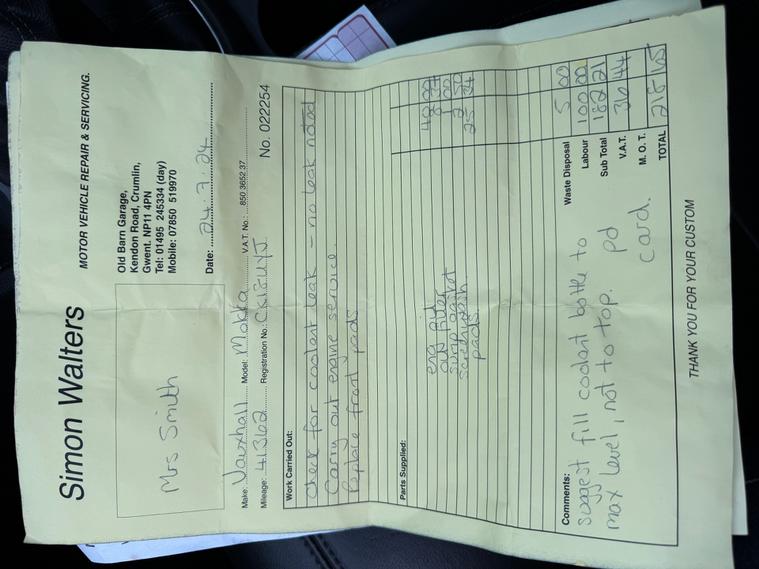 Simon Walters
MOTOR VEHICLE REPAIR & SERVICING.
Mrs Smith
Old Barn Garage,
Kendon Road, Crumlin,
Gwent. NP11 4PN
Tel: 01495 245334 (day)
Mobile: 07850 519970
Date: 24.7.24
Make: Vauxhall Model: Mokka V.A.T. No.: 850 3652 37
Mileage: 41362 Registration No.: No. 022254
Work Carried Out:
Check for coolant leak - no leak noted
Carry out engine service.
Replace front pads.
Parts Supplied:
eng oil 48 00
oil filter
sump gasket 1 00
screenwash 2 50
pads. 25 34
Comments:
suggest fill coolant bottle to
max level, not to top. pd
card.
Waste Disposal 5 00
Labour 100 00
Sub Total 182 21
V.A.T. 36 44
M. O. T.
TOTAL 218 65
THANK YOU FOR YOUR CUSTOM